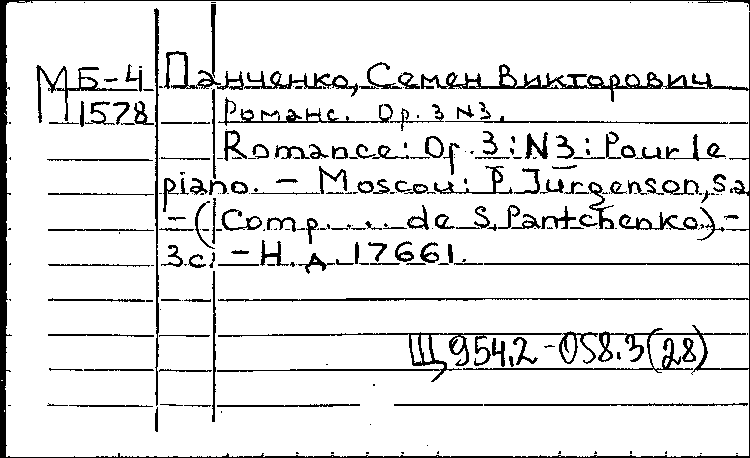 МБ-4 Панченко, Семен Викторович
1578 Романс. Ор. 3 N3.
Romance: Op. 3: N3: Pour le
piano. - Moscou: P. Jurgenson, S.a.
- (Comp.... de S. Pantchenko). -
3 с. - Н. д. 17661.
Щ954.2-058.3(28)